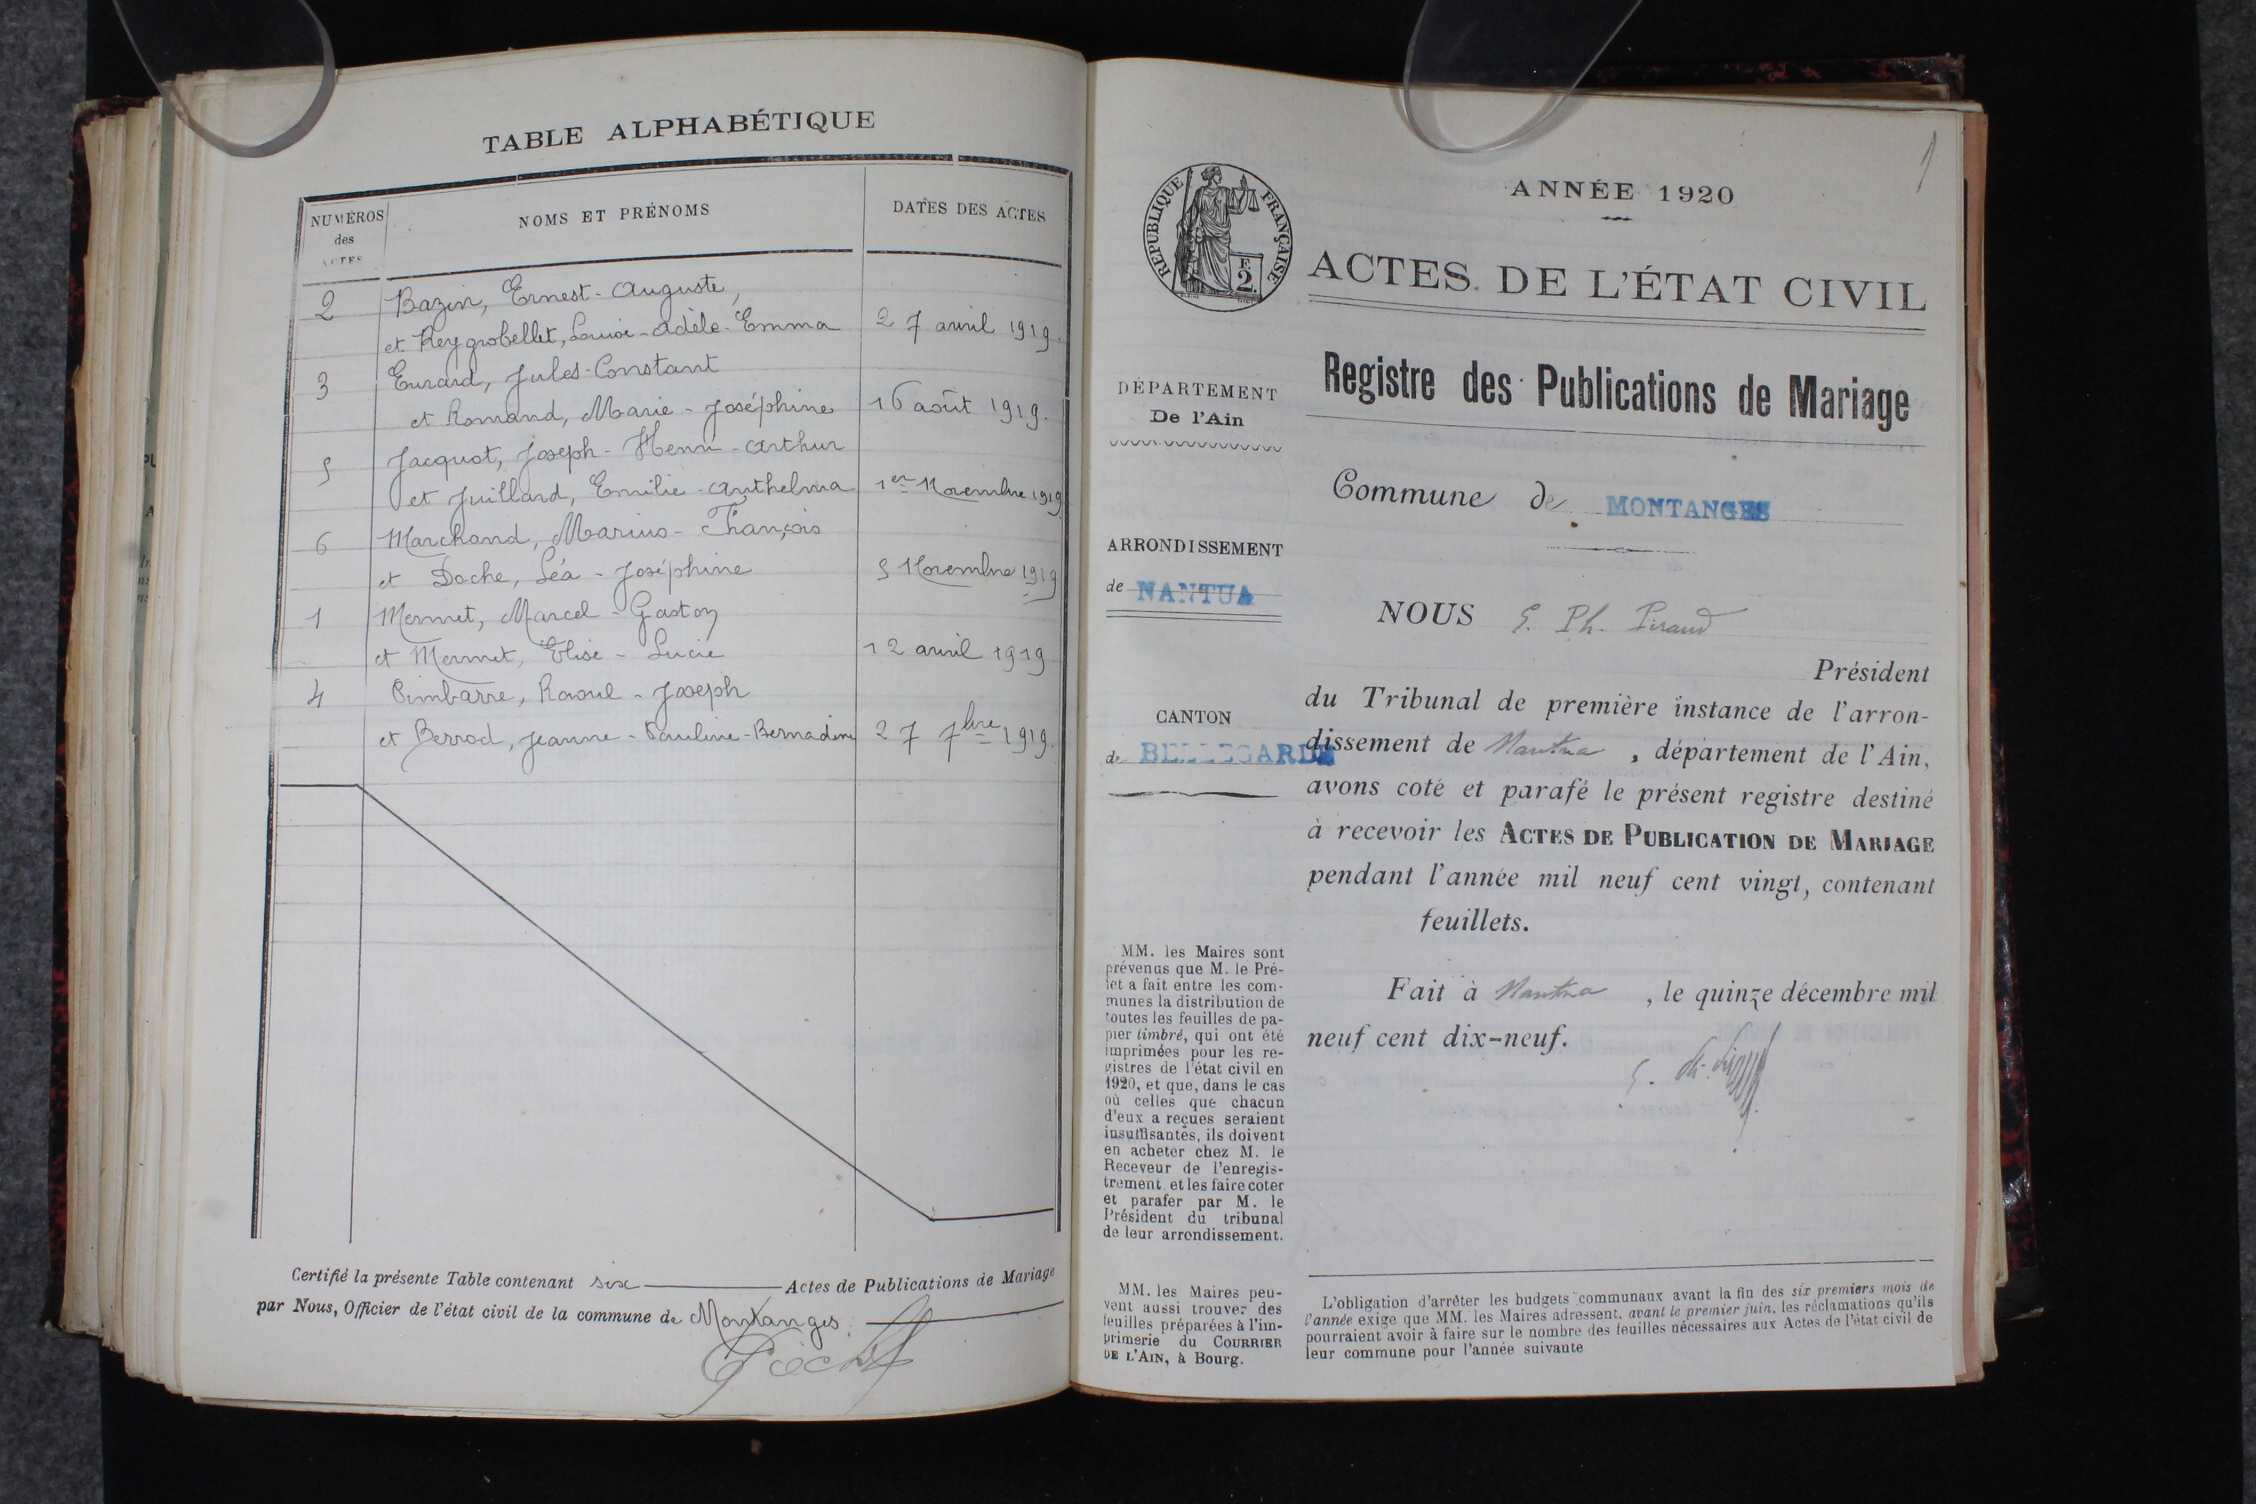 TABLE ALPHABÉTIQUE
NUMÉROS
des
ACTES
NOMS ET PRÉNOMS
DATES DES ACTES
2 Bazin, Ernest-Auguste,
et Reygrobellet, Louise-Adèle-Emma 27 avril 1919.
3 Eurard, Jules-Constant
et Romand, Marie-Joséphine 16 août 1919.
5 Jacquot, Joseph-Henri-Arthur
et Juillard, Emilie-Anthelma 1er Novembre 1919
6 Marchand, Marius-François
et Doche, Léa-Joséphine 5 Novembre 1919
1 Mermet, Marcel-Gaston
et Mermet, Elise-Lucie 12 avril 1919
4 Pimbarre, Raoul-Joseph
et Berrod, Jeanne-Pauline-Bernadine 27 7bre 1919.
Certifié la présente Table contenant six Actes de Publications de Mariage
par Nous, Officier de l'état civil de la commune de Montanges.
1
RÉPUBLIQUE FRANÇAISE
E.
2.
ANNÉE 1920
ACTES DE L'ÉTAT CIVIL
Registre des Publications de Mariage
DÉPARTEMENT
De l'Ain
Commune de MONTANGES
ARRONDISSEMENT
de NANTUA
CANTON
de BELLEGARDE
NOUS G. Ph. Piraud
Président
du Tribunal de première instance de l'arron-
dissement de Nantua, département de l'Ain,
avons coté et parafé le présent registre destiné
à recevoir les ACTES DE PUBLICATION DE MARIAGE
pendant l'année mil neuf cent vingt, contenant
feuillets.
Fait à Nantua, le quinze décembre mil
neuf cent dix-neuf.
MM. les Maires sont
prévenus que M. le Pré-
fet a fait entre les com-
munes la distribution de
toutes les feuilles de pa-
pier timbré, qui ont été
imprimées pour les re-
gistres de l'état civil en
1920, et que, dans le cas
où celles que chacun
d'eux a reçues seraient
insuffisantes, ils doivent
en acheter chez M. le
Receveur de l'enregis-
trement et les faire coter
et parafer par M. le
Président du tribunal
de leur arrondissement.
MM. les Maires peu-
vent aussi trouver des
feuilles préparées à l'im-
primerie du COURRIER
DE L'AIN, à Bourg.
L'obligation d'arrêter les budgets communaux avant la fin des six premiers mois de
l'année exige que MM. les Maires adressent, avant le premier juin, les réclamations qu'ils
pourraient avoir à faire sur le nombre des feuilles nécessaires aux Actes de l'état civil de
leur commune pour l'année suivante